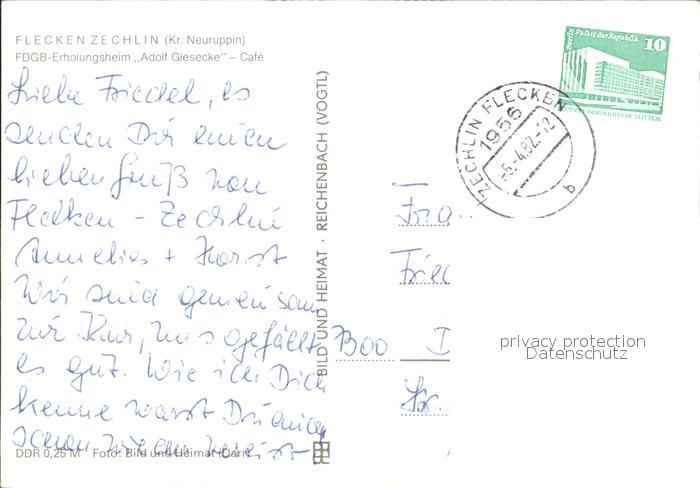 FLECKEN ZECHLIN (Kr. Neuruppin)
FDGB-Erholungsheim „Adolf Giesecke" – Café
Liebe Friedel, es
senden Dir einen
lieben Gruß von
Flecken - Zechlin
Annelies + Horst
Wir sind gemeinsam
zur Kur, uns gefällt
es gut. Wie ich Dich
kenne warst Du
schon
DDR 0,25 M Foto: Bild und Heimat (Darr)
BILD UND HEIMAT · REICHENBACH (VOGTL)
Berlin Palast der Republik
10
DEUTSCHE DEMOKRATISCHE REPUBLIK
ZECHLIN FLECKEN
1956
-5.-4.82.-12
b
Fra
Frie
Boo D
Str.
privacy protection
Datenschutz